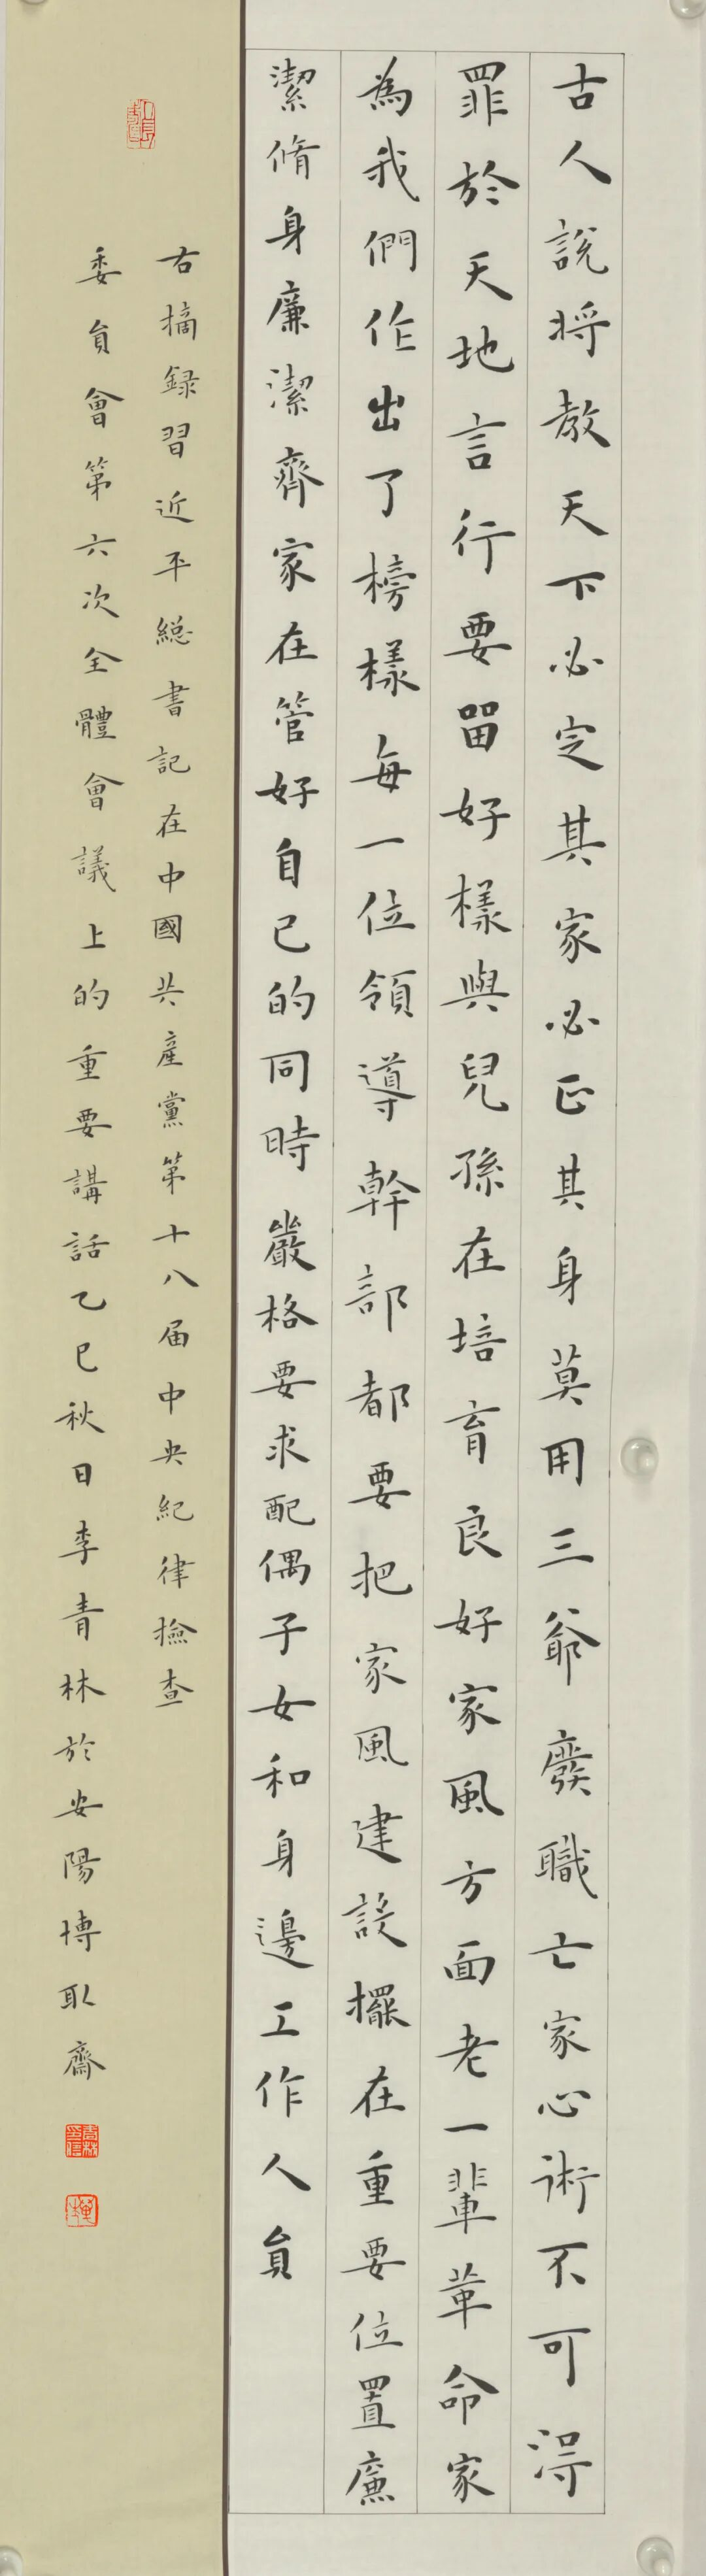 古人說將教天下必定其家必正其身莫用三爺廢職亡家心術不可得
罪於天地言行要留好樣與兒孫在培育良好家風方面老一輩革命家
為我們作出了榜樣每一位領導幹部都要把家風建設擺在重要位置廉
潔脩身廉潔齊家在管好自己的同時嚴格要求配偶子女和身邊工作人員
右摘録習近平總書記在中國共產黨第十八届中央紀律撿查
委員會第六次全體會議上的重要講話乙巳秋日李青林於安陽博取齋